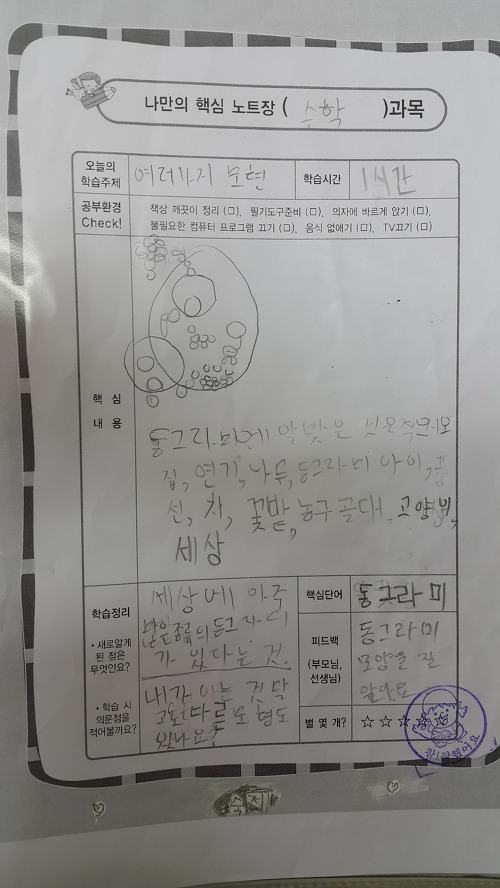 나만의 핵심 노트장 ( 수학 )과목
오늘의 학습주제 여러가지 모현 학습시간 1시간
공부환경 Check!
책상 깨끗이 정리 (□), 필기도구준비 (□), 의자에 바르게 앉기 (□),
불필요한 컴퓨터 프로그램 끄기 (□), 음식 없애기 (□), TV끄기 (□)
핵 심
내 용
동그라미에 알맞은 것은적으시오
집, 연기, 나무, 동그라미 아이, 풍
선, 차, 꽃밭, 농구 골대, 고양이,
세상
학습정리
• 새로알게
된 점은
무엇인요?
세상에 아주
많은종류의 동그라미
가 있다는 것.
• 학습 시
의문점을
적어볼까요?
내가 아는 것 말
고또다른 모형도
있나요?
핵심단어 동그라미
피드백
(부모님,
선생님)
동그라미
모양을 잘
알아요
별 몇 개? ☆☆☆☆☆
참 잘했어요
숙제